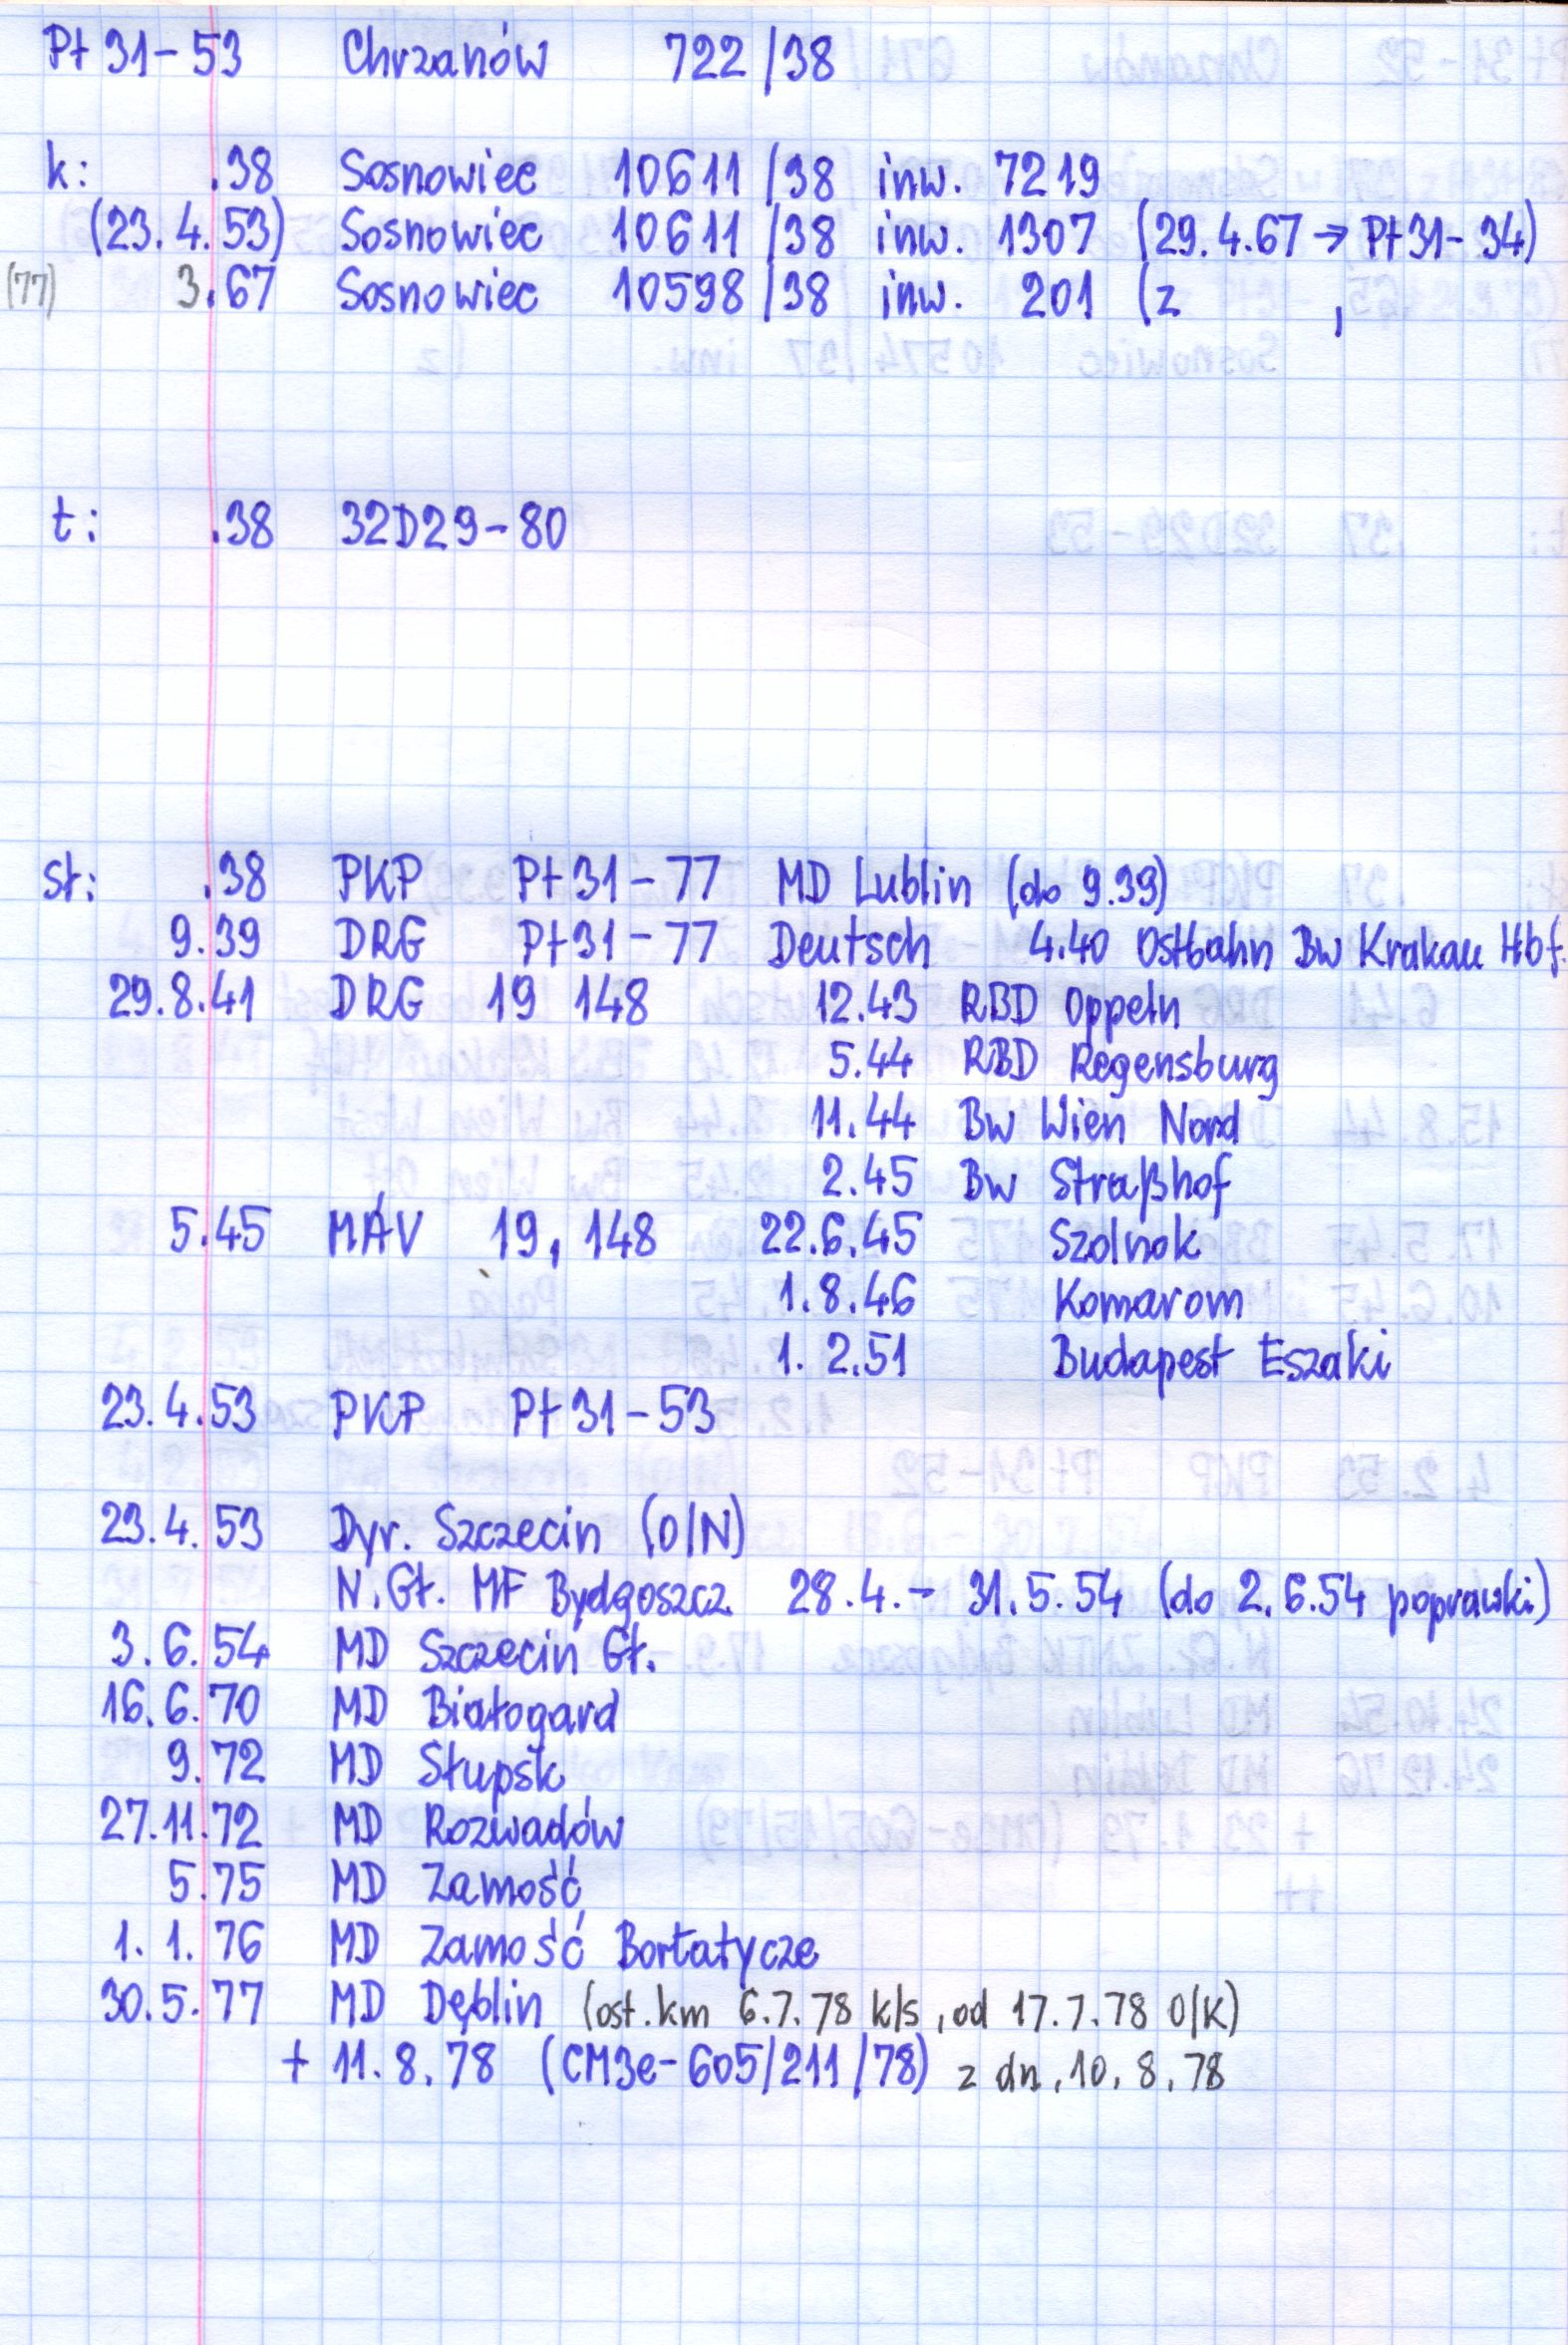 Pt 31-53 Chrzanów 722/38
k: .38 Sosnowiec 10611/38 inw. 7219
(23.4.53) Sosnowiec 10611/38 inw. 1307 (29.4.67 → Pt31-34)
(77) 3.67 Sosnowiec 10598/38 inw. 201 (z ,
t: .38 32D29-80
st: .38 PKP Pt31-77 MD Lublin (do 9.39)
9.39 DRG Pt31-77 Deutsch 4.40 Ostbahn Bw Krakau Hbf.
29.8.41 DRG 19 148 12.43 RBD Oppeln
5.44 RBD Regensburg
11.44 Bw Wien Nord
2.45 Bw Straßhof
5.45 MÁV 19,148 22.6.45 Szolnok
1.8.46 Komarom
1.2.51 Budapest Eszaki
23.4.53 PKP Pt31-53
23.4.53 Dyr. Szczecin (O/N)
N.Gł. MF Bydgoszcz 28.4.- 31.5.54 (do 2.6.54 poprawki)
3.6.54 MD Szczecin Gł.
16.6.70 MD Białogard
9.72 MD Słupsk
27.11.72 MD Rozwadów
5.75 MD Zamość
1.1.76 MD Zamość Bortatycze
30.5.77 MD Dęblin (ost.km 6.7.78 k/s, od 17.7.78 O/K)
+ 11.8.78 (CM3e-605/211/78) z dn. 10.8.78